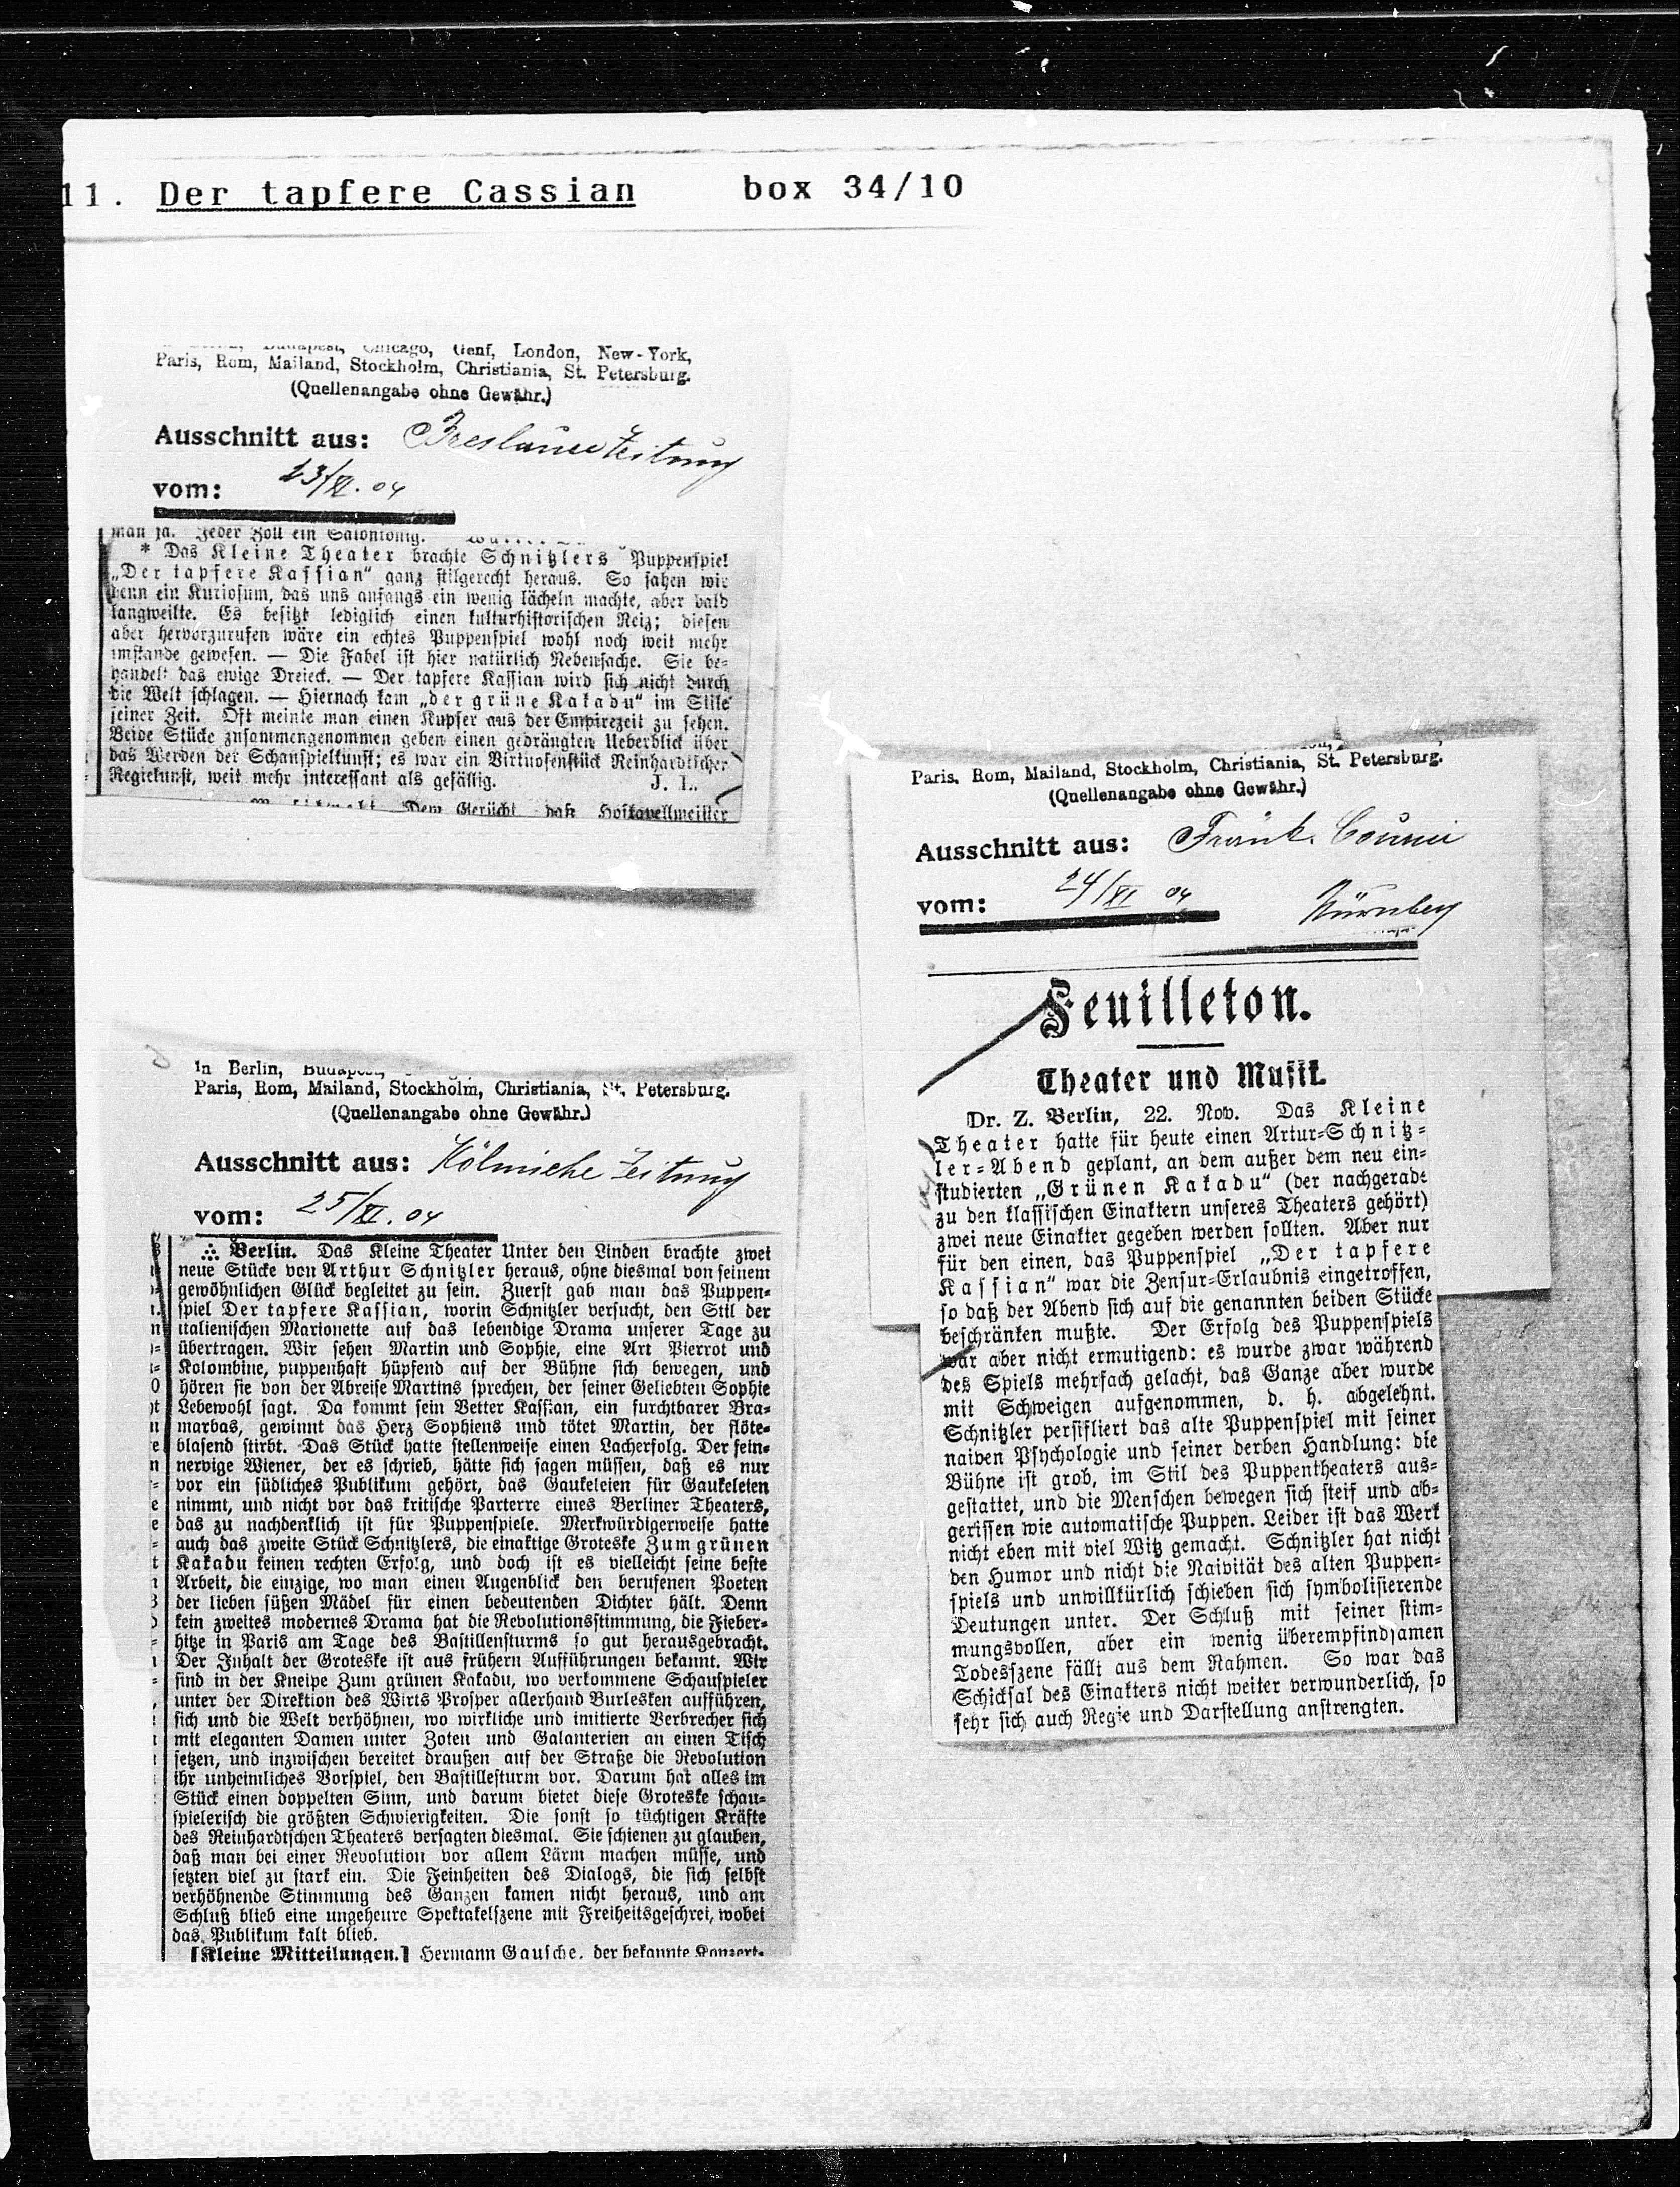 11. Der tapfere Cassian box 34/10
Chicago, Genf, London, New-York,
Paris, Rom, Mailand, Stockholm, Christiania, St. Petersburg.
(Quellenangabe ohne Gewähr.)
Ausschnitt aus: Breslauer Zeitung
vom: 23/XI. 04
man ja. Jeder Zoll ein Salonkönig.
* Das Kleine Theater brachte Schnitzlers Puppenspiel
„Der tapfere Kassian“ ganz stilgerecht heraus. So sahen wir
denn ein Kuriosum, das uns anfangs ein wenig lächeln machte, aber bald
langweilte. Es besitzt lediglich einen kulturhistorischen Reiz; diesen
aber hervorzurufen wäre ein echtes Puppenspiel wohl noch weit mehr
imstande gewesen. — Die Fabel ist hier natürlich Nebensache. Sie be-
handelt das ewige Dreieck. — Der tapfere Kassian wird sich nicht durch
die Welt schlagen. — Hiernach kam „der grüne Kakadu“ im Stile
seiner Zeit. Oft meinte man einen Kupfer aus der Empirezeit zu sehen.
Beide Stücke zusammengenommen geben einen gedrängten Ueberblick über
das Werden der Schauspielkunst; es war ein Virtuosenstück Reinhardtscher
Regiekunst, weit mehr interessant als gefällig. J. L.
Dem Gerücht daß Hofkapellmeister
In Berlin, Budapest,
Paris, Rom, Mailand, Stockholm, Christiania, St. Petersburg.
(Quellenangabe ohne Gewähr.)
Ausschnitt aus: Kölnische Zeitung
vom: 25/XI. 04
∴ Berlin. Das Kleine Theater Unter den Linden brachte zwei
neue Stücke von Arthur Schnitzler heraus, ohne diesmal von seinem
gewöhnlichen Glück begleitet zu sein. Zuerst gab man das Puppen-
spiel Der tapfere Kassian, worin Schnitzler versucht, den Stil der
italienischen Marionette auf das lebendige Drama unserer Tage zu
übertragen. Wir sehen Martin und Sophie, eine Art Pierrot und
Kolombine, puppenhaft hüpfend auf der Bühne sich bewegen, und
hören sie von der Abreise Martins sprechen, der seiner Geliebten Sophie
Lebewohl sagt. Da kommt sein Vetter Kassian, ein furchtbarer Bra-
marbas, gewinnt das Herz Sophiens und tötet Martin, der flöte-
blasend stirbt. Das Stück hatte stellenweise einen Lacherfolg. Der fein-
nervige Wiener, der es schrieb, hätte sich sagen müssen, daß es nur
vor ein südliches Publikum gehört, das Gaukeleien für Gaukeleien
nimmt, und nicht vor das kritische Parterre eines Berliner Theaters,
das zu nachdenklich ist für Puppenspiele. Merkwürdigerweise hatte
auch das zweite Stück Schnitzlers, die einaktige Groteske Zum grünen
Kakadu keinen rechten Erfolg, und doch ist es vielleicht seine beste
Arbeit, die einzige, wo man einen Augenblick den berufenen Poeten
der lieben süßen Mädel für einen bedeutenden Dichter hält. Denn
kein zweites modernes Drama hat die Revolutionsstimmung, die Fieber-
hitze in Paris am Tage des Bastillensturms so gut herausgebracht.
Der Inhalt der Groteske ist aus frühern Aufführungen bekannt. Wir
sind in der Kneipe Zum grünen Kakadu, wo verkommene Schauspieler
unter der Direktion des Wirts Prosper allerhand Burlesken aufführen,
sich und die Welt verhöhnen, wo wirkliche und imitierte Verbrecher sich
mit eleganten Damen unter Zoten und Galanterien an einen Tisch
setzen, und inzwischen bereitet draußen auf der Straße die Revolution
ihr unheimliches Vorspiel, den Bastillesturm vor. Darum hat alles im
Stück einen doppelten Sinn, und darum bietet diese Groteske schau-
spielerisch die größten Schwierigkeiten. Die sonst so tüchtigen Kräfte
des Reinhardtschen Theaters versagten diesmal. Sie schienen zu glauben,
daß man bei einer Revolution vor allem Lärm machen müsse, und
setzten viel zu stark ein. Die Feinheiten des Dialogs, die sich selbst
verhöhnende Stimmung des Ganzen kamen nicht heraus, und am
Schluß blieb eine ungeheure Spektakelszene mit Freiheitsgeschrei, wobei
das Publikum kalt blieb.
[Kleine Mitteilungen.] Hermann Gausche, der bekannte Konzert-
Paris, Rom, Mailand, Stockholm, Christiania, St. Petersburg.
(Quellenangabe ohne Gewähr.)
Ausschnitt aus: Fränk. Courier
vom: 24/XI 04 Nürnberg
Feuilleton.
Theater und Musik.
Dr. Z. Berlin, 22. Nov. Das Kleine
Theater hatte für heute einen Artur-Schnitz-
ler-Abend geplant, an dem außer dem neu ein-
studierten „Grünen Kakadu“ (der nachgerade
zu den klassischen Einaktern unseres Theaters gehört)
zwei neue Einakter gegeben werden sollten. Aber nur
für den einen, das Puppenspiel „Der tapfere
Kassian“ war die Zensur-Erlaubnis eingetroffen,
so daß der Abend sich auf die genannten beiden Stücke
beschränken mußte. Der Erfolg des Puppenspiels
war aber nicht ermutigend: es wurde zwar während
des Spiels mehrfach gelacht, das Ganze aber wurde
mit Schweigen aufgenommen, d. h. abgelehnt.
Schnitzler persifliert das alte Puppenspiel mit seiner
naiven Psychologie und seiner derben Handlung: die
Bühne ist grob, im Stil des Puppentheaters aus-
gestattet, und die Menschen bewegen sich steif und ab-
gerissen wie automatische Puppen. Leider ist das Werk
nicht eben mit viel Witz gemacht. Schnitzler hat nicht
den Humor und nicht die Naivität des alten Puppen-
spiels und unwillkürlich schieben sich symbolisierende
Deutungen unter. Der Schluß mit seiner stim-
mungsvollen, aber ein wenig überempfindsamen
Todesszene fällt aus dem Rahmen. So war das
Schicksal des Einakters nicht weiter verwunderlich, so
sehr sich auch Regie und Darstellung anstrengten.